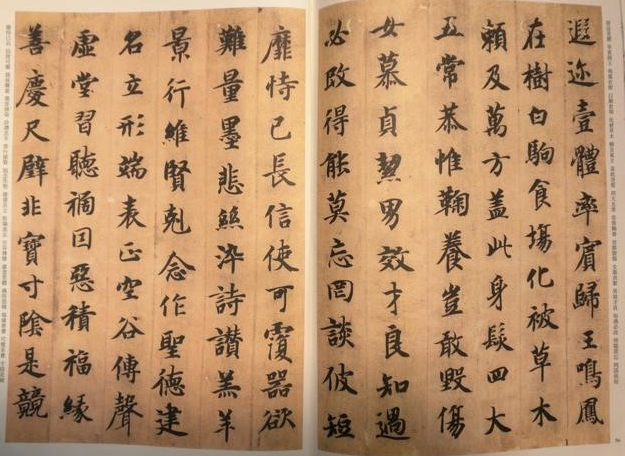 遐迩壹體率賓歸王鳴鳳
在樹白駒食場化被草木
賴及萬方蓋此身髮四大
五常恭惟鞠養豈敢毀傷
女慕貞絜男效才良知過
必改得能莫忘罔談彼短
靡恃己長信使可覆器欲
難量墨悲絲淬詩讃羔羊
景行維賢剋念作聖德建
名立形端表正空谷傳聲
虛堂習聽禍因惡積福緣
善慶尺璧非寶寸陰是競